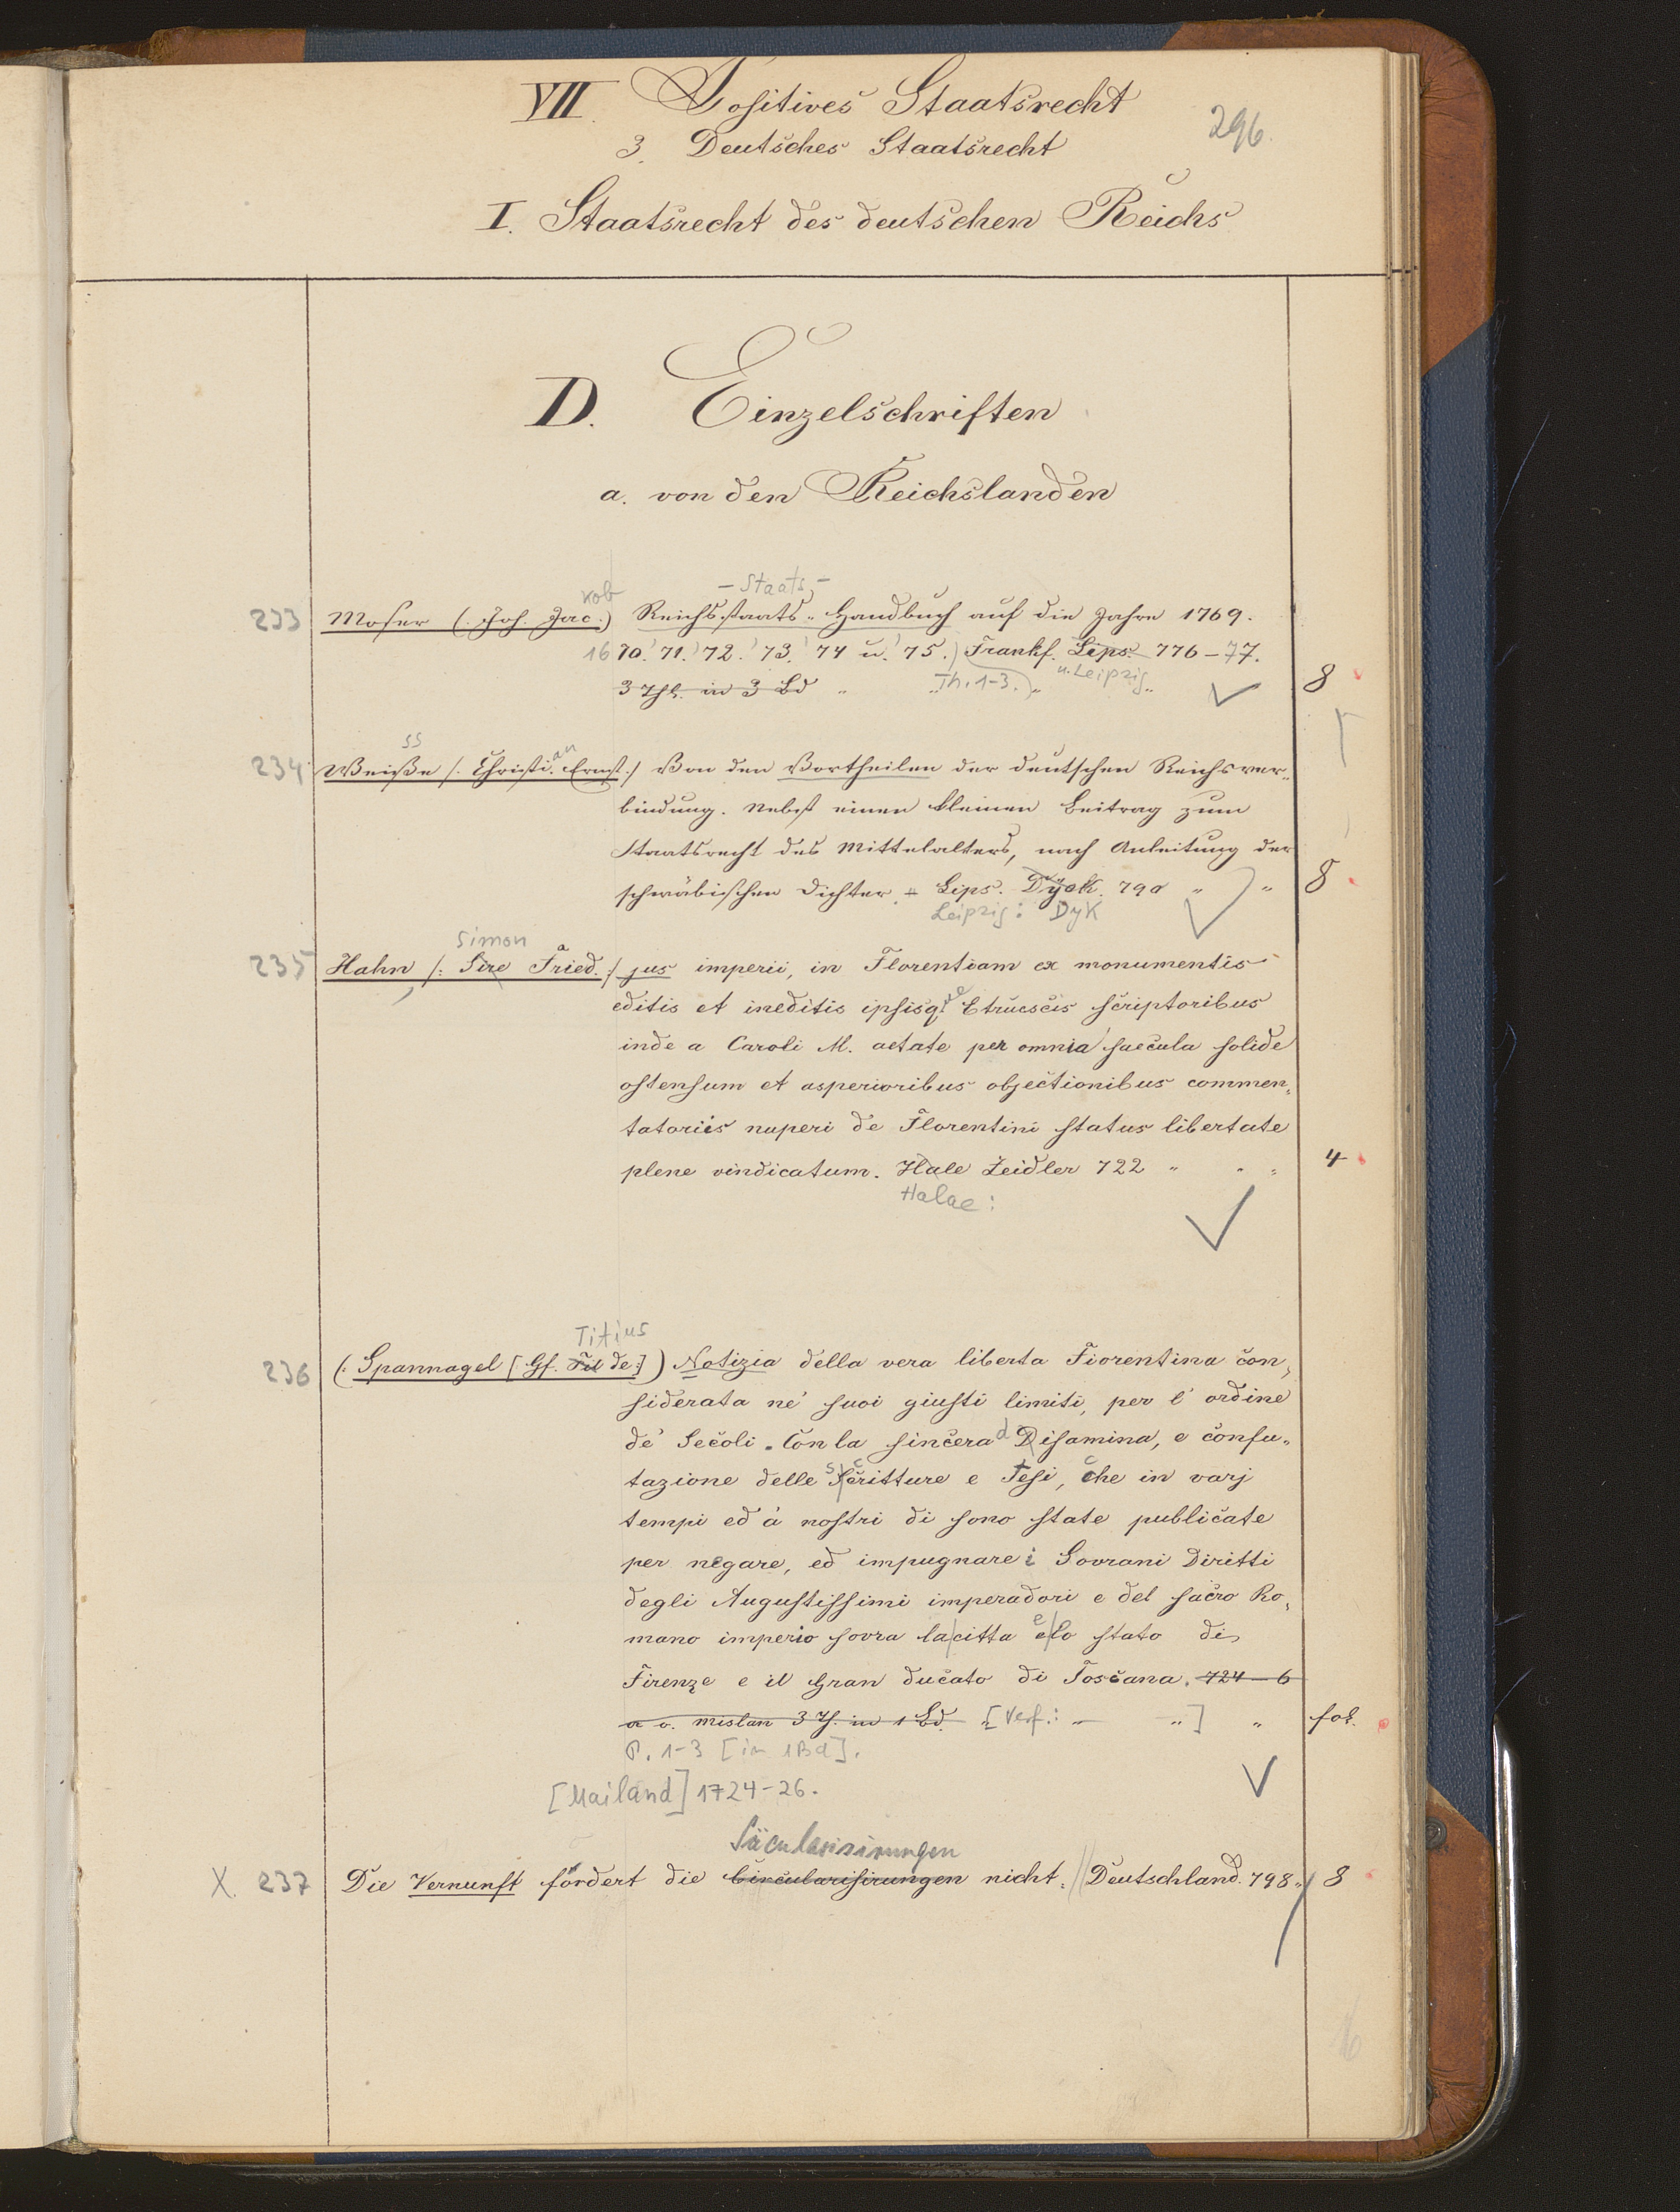 VII. Positives Staatsrecht
296.
3. Deutsches Staatsrecht
I. Staatsrecht des deutschen Reichs
D. Einzelschriften
a. von den Reichslanden
kob - Staats -
233 Moser (. Joh. Jac.) Reichsstaats-Handbuch auf die Jahre 1769.
16 70. 71. 72. 73. 74 u. 75.) Frankf. Lips. 776-77.
u. Leipzig
3 Thl. in 3 Bd " Th. 1-3.) " " 8
ss an
234 Weiße /. Christi. Ernst./ Von den Vortheilen der deutschen Reichsver-
bindung. Nebst einen kleinen Beitrag zum
Staatsrecht des Mittelalters, nach Anleitung der
schwäbischen Dichter. Lips. Dyck. 790 " " 8
Leipzig: Dyk
Simon
235 Hahn /: Sire Fried. :/ jus imperii, in Florentiam ex monumentis
editis et ineditis ipsisq. ue Etrucscis scriptoribus
inde a Caroli M. aetate per omnia saecula solide
ostensum et asperioribus objectionibus commen-
tatoriis nuperi de Florentini status libertate
plene vindicatum. Hale Zeidler 722 " " " 4
Halae:
Titius
236 (: Spannagel [Gf. Fil de:]) Notizia della vera liberta Fiorentina con-
siderata ne' suoi giusti limiti, per l' ordine
de' Secoli. Con la sincera d Disamina, e confu-
tazione delle Scritture e Tesi, che in varj
tempi ed a' nostri di sono state publicate
per negare, ed impugnare i Sovrani Diritti
degli Augustissimi imperadori e del sacro Ro-
mano imperio sovra la citta e lo stato di
Firenze e il Gran ducato di Toscana. 724-6
mislan 3 Th. in 1 Bd. [Verf.: " "] " fol.
P. 1-3 [in 1 Bd].
[Mailand] 1724-26.
Säcularisirungen
X. 237 Die Vernunft fördert die Circularisirungen nicht. Deutschland. 798. 8